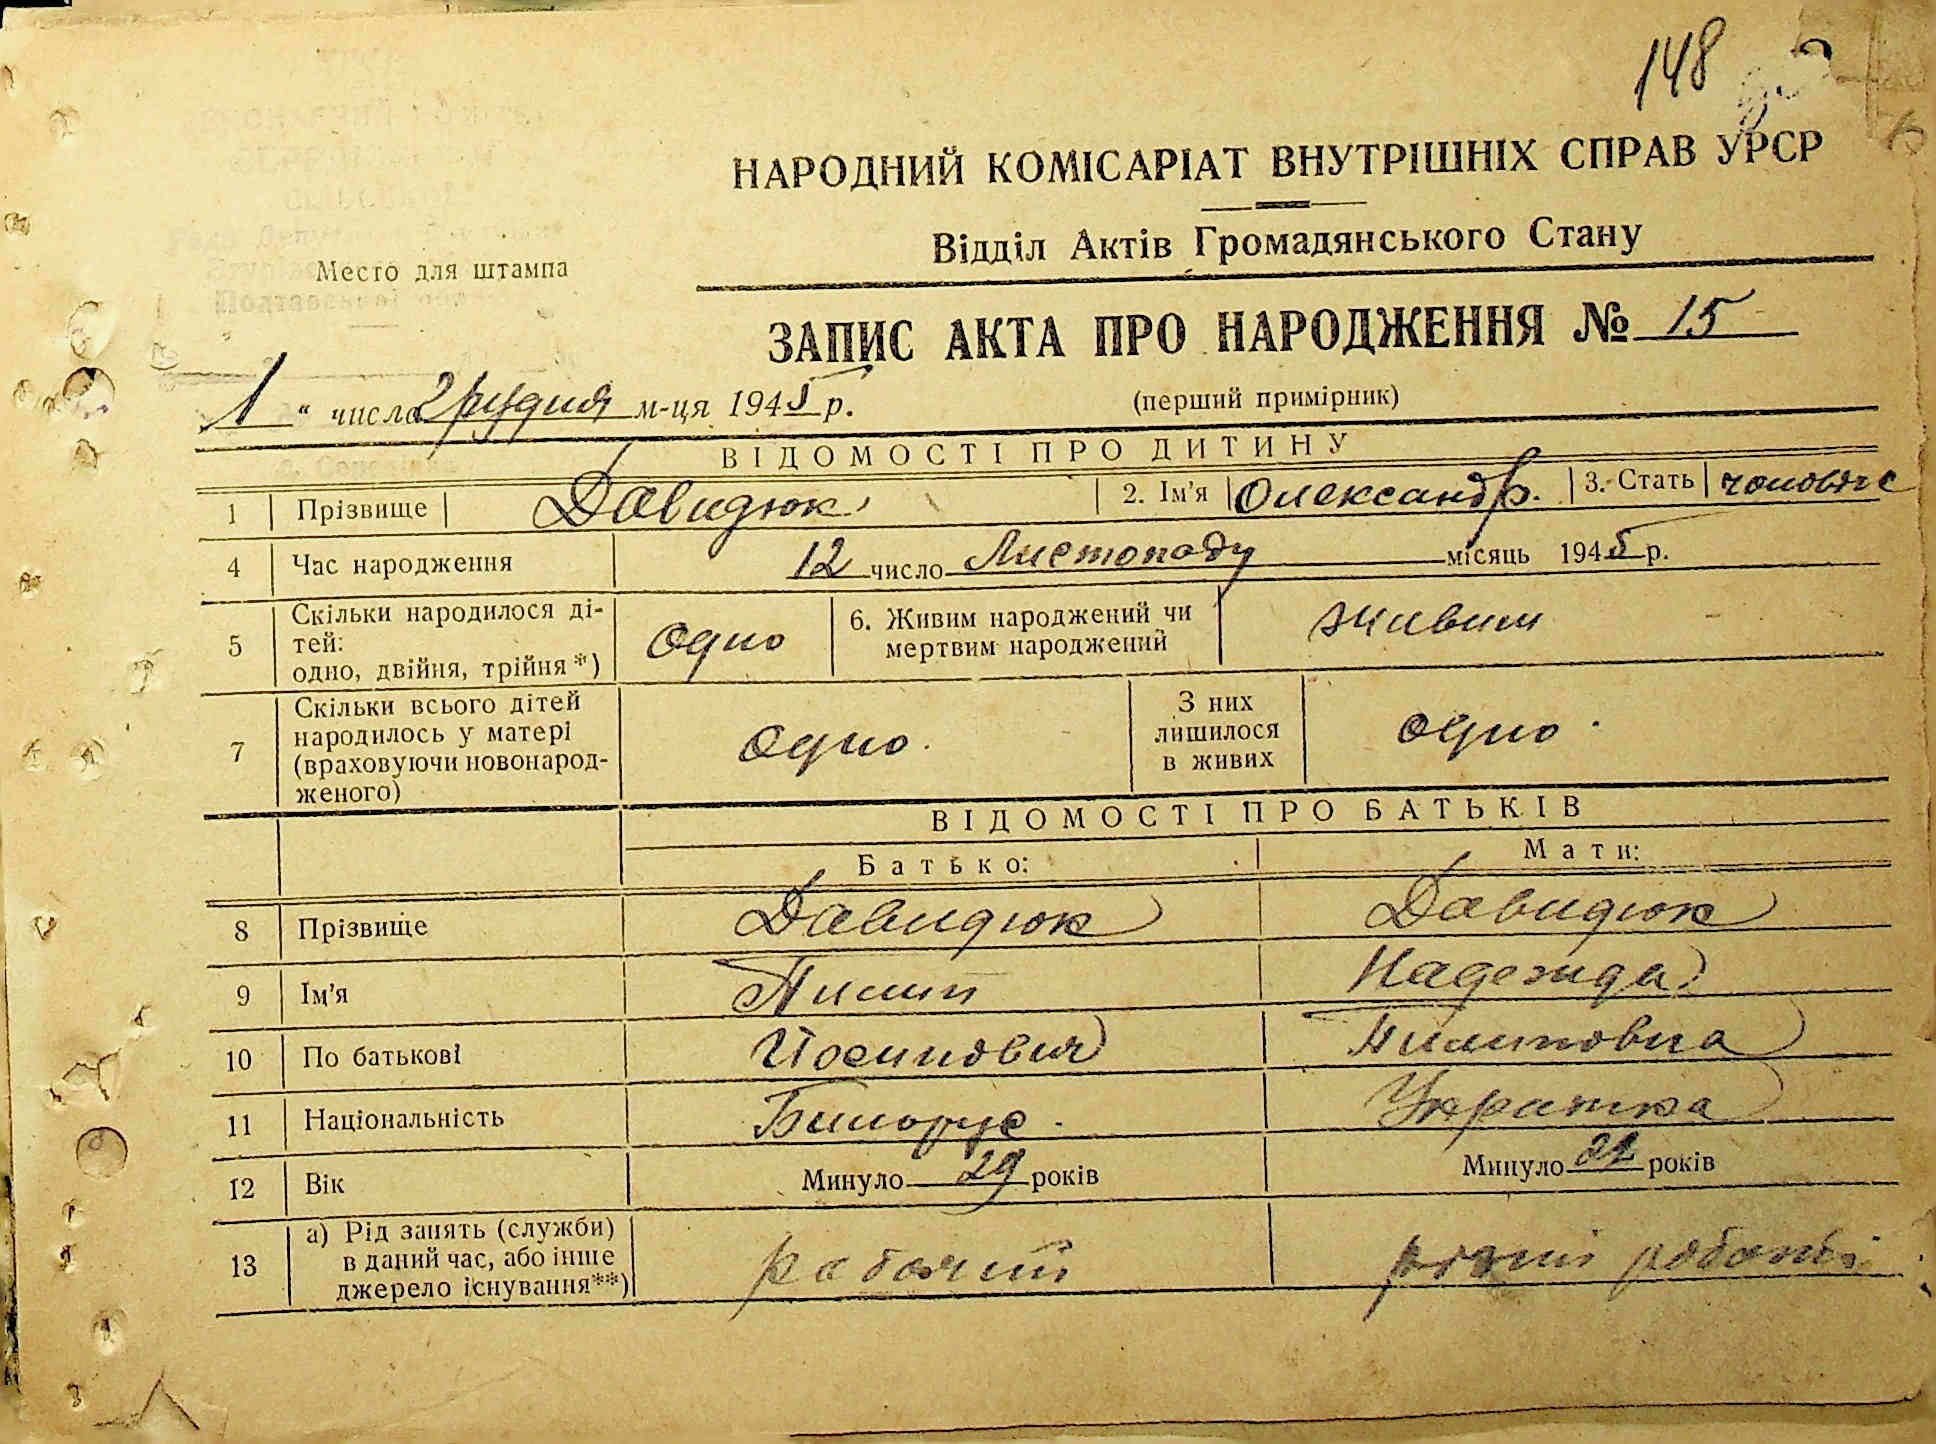 148
НАРОДНИЙ КОМІСАРІАТ ВНУТРІШНІХ СПРАВ УРСР
Відділ Актів Громадянського Стану
Место для штампа
ЗАПИС АКТА ПРО НАРОДЖЕННЯ № 15
1 " число грудня м-ця 1945 р.
(перший примірник)
ВІДОМОСТІ ПРО ДИТИНУ
1 Прізвище Давидюк 2. Ім'я Олександр. 3. Стать чоловіче
4 Час народження 12 число Листопаду місяць 1945 р.
5 Скільки народилося ді-
тей:
одно, двійня, трійня*) одно 6. Живим народжений чи
мертвим народжений живим
7 Скільки всього дітей
народилось у матері
(враховуючи новонарод-
женого) одно. З них
лишилося
в живих одно.
ВІДОМОСТІ ПРО БАТЬКІВ
Батько: Мати:
8 Прізвище Давидюк Давидюк
9 Ім'я Пилип Надежда
10 По батькові Йосипович Пилиповна
11 Національність Билорус. Украинка
12 Вік Минуло 29 років Минуло років
13 а) Рід занять (служби)
в даний час, або інше
джерело існування**) рабочий різні роботи